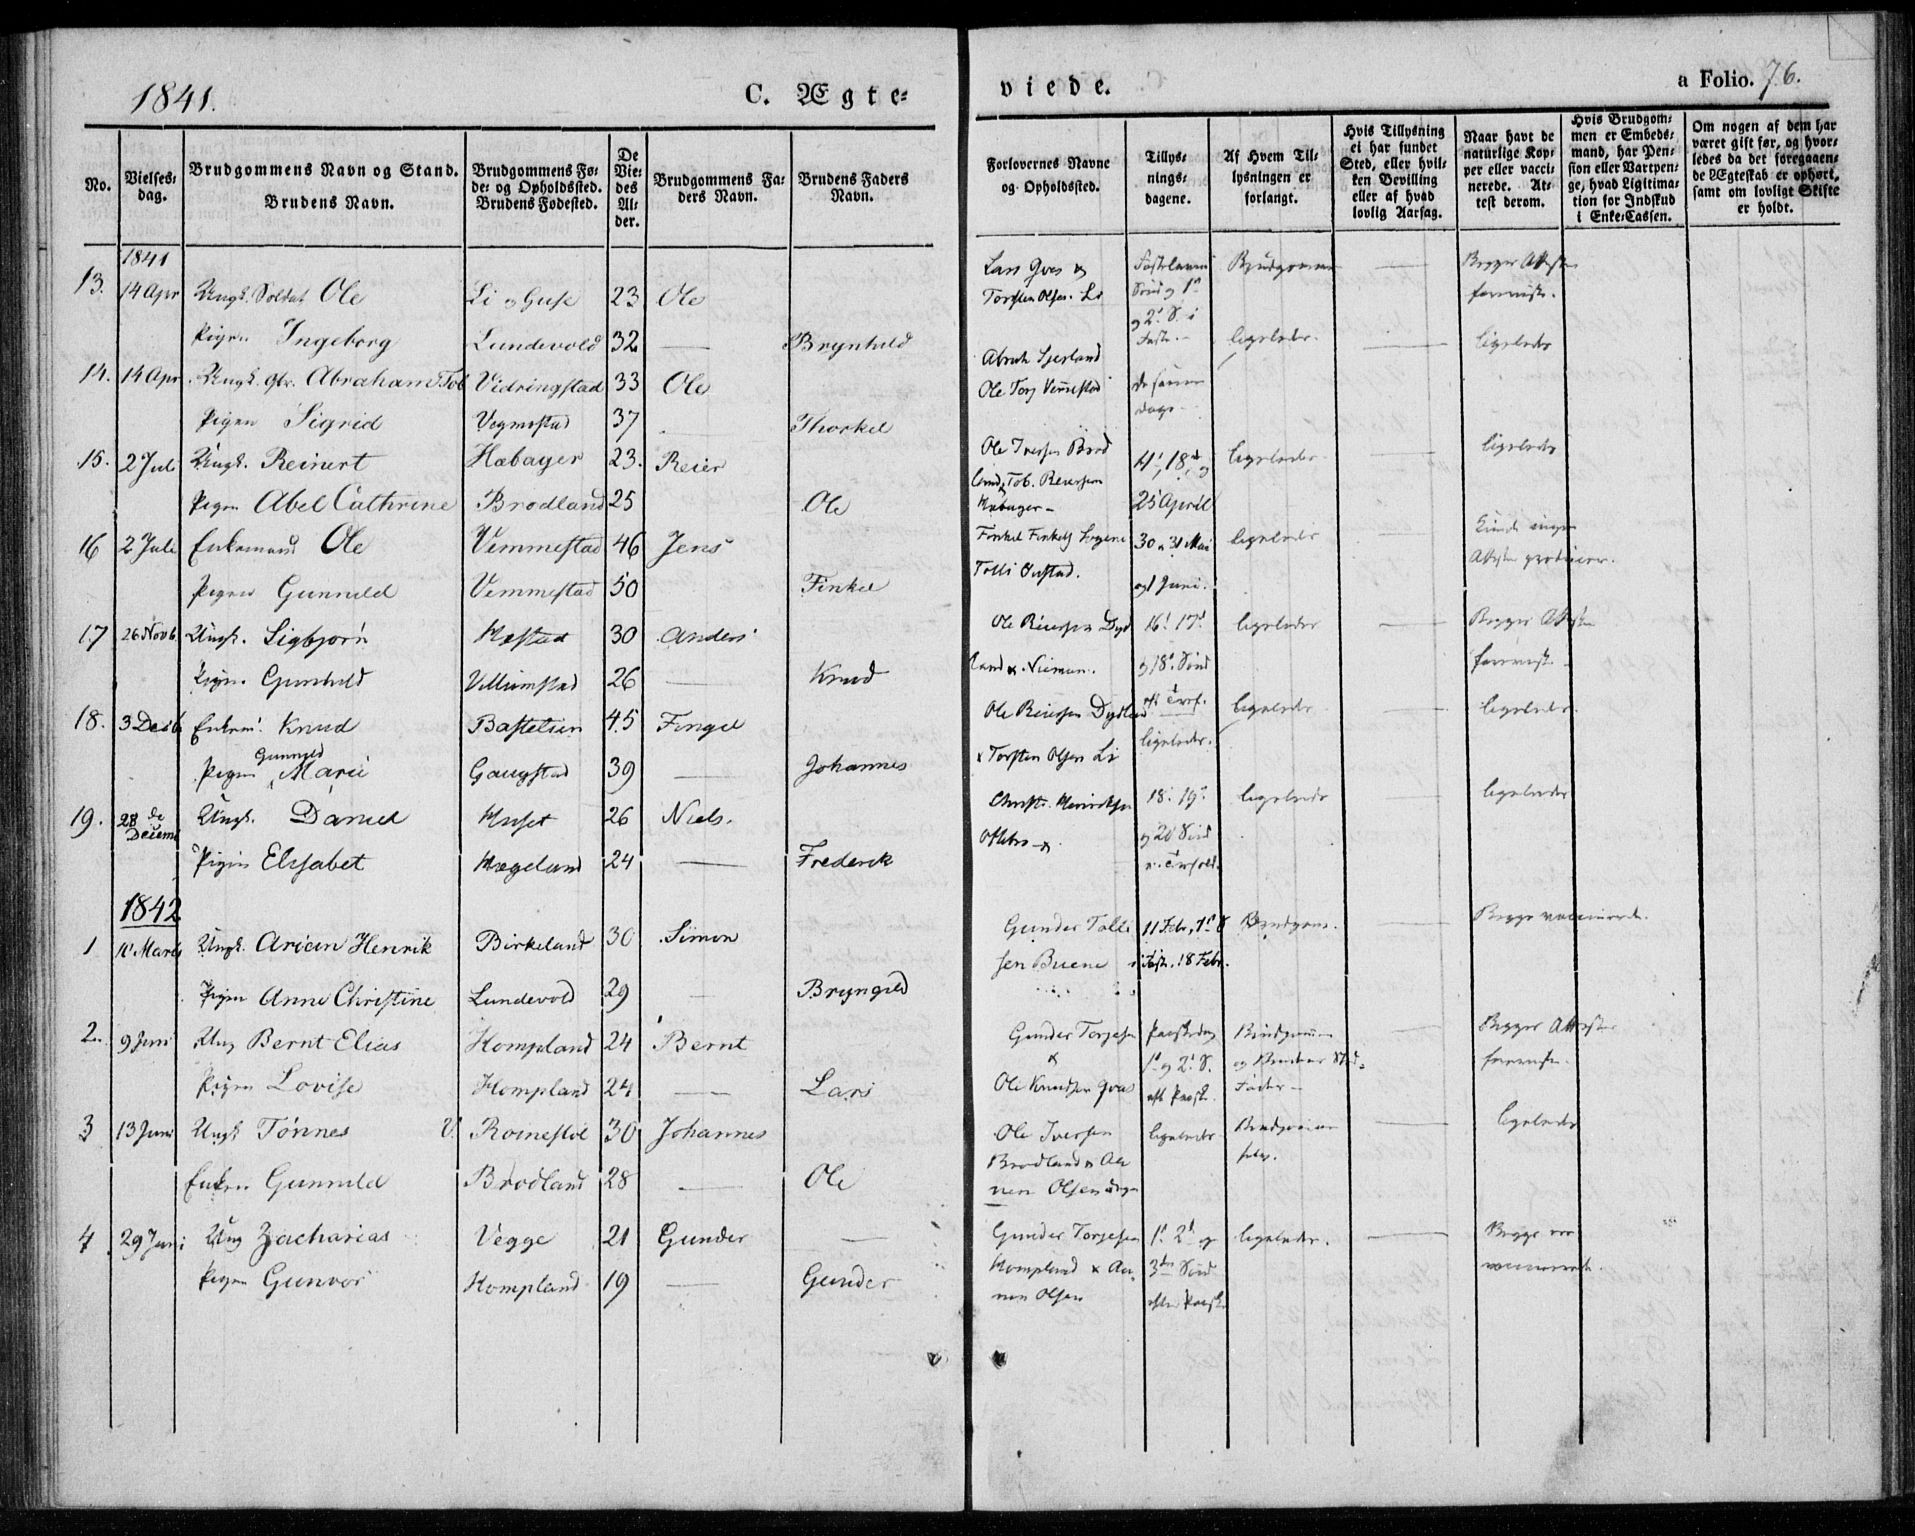 1841.
C. Ægte=
viede.
a Folio. 76.
No.
Vielses=dag.
Brudgommens Navn og Stand.
Brudens Navn.
Brudgommens Fø=de= og Opholdssted.
Brudens Fødested.
De Vie=des Al=der.
Brudgommens Fa=ders Navn.
Brudens Faders Navn.
Forlovernes Navne og Opholdssted.
Tillys=nings=dagene.
Af Hvem Til=lysningen er forlangt.
Hvis Tillysning ei har fundet Sted, eller hvil=ken Bevilling eller af hvad lovlig Aarsag.
Naar havt de naturlige Kop=per eller vacci=nerede. At=test derom.
Hvis Brudgom=men er Embeds=mand, har Pen=sion eller Vartpen=ge, hvad Ligitima=tion for Indskud i Enke=Cassen.
Om nogen af dem har været gift før, og hvor=ledes da det foregaaen=de Ægteskab er ophørt, samt om lovligt Skifte er holdt.
1841
13. 14 Apr Ungk. Soldat Ole Li og Guse 23 Ole
Lars Qves & Torsten Olsen Li
Brudgommen
Begges Attester foreviste.
Pigen Ingeborg Lundevold 32 — Brynhild
ligeledes. ligeledes
14. 14 Apr. Ungk. Abraham Tob Vidringstad 33 Ole
Ole Torj Vemestad de samme Dage
Pigen Sigrid Vegmestad 37 Thorkel
15. 2 Jul Ungk. Reinert Habager 23. Reier
Ole Iversen Brod land & Tob. Reiersen Habager
4', 18de og 25 April
ligeledes ligeledes
Pigen Abel Cathrine Brodland 25 Ole
16 2 Juli Enkemand Ole Vemmestad 46 Jens
30 & 31 Mai og 1 Juni.
ligeledes
Kunde ingen Attester producere.
Pigen Gunnild Vemmestad 50 Finkel
17 26 Novb Ungk. Sigbjørn Høstad 30 Anders
Ole Reiersen Dyd land
16' 17' og 18' Sönd
ligeledes
Begges Attester foreviste
Pigen Gunhild Villumstad 26 — Knud
18. 3 Decb Enkem. Knud Bastelien 45 Fingel
Ole Reiersen Dydland & Torsten Olsen Li
ligeledes. ligeledes ligeledes.
Pigen Gunnild Marie Gaugstad 39 — Johannes
19. 28 de Decemb Ungk. Daniel Huset 26 Niels.
18' 19' og 20 Sönd
ligeledes ligeledes
Pigen Elisabet Hægeland 24 — Frederik
1842
1 10 Marts Ungk. Arian Henrik Birkeland 30 Simon
Gunder Tolli sen Buene
11 Febr, 1' S i Fast., 18 Febr.
Brudgom.
Begge vaccinerede.
Pigen Anne Christine Lundevold 29 — Bryngild
2. 9 Juni Ung Bernt Elias Kompland 24 Bernt
Gunder Torjesen & Ole Knudsen Qves
Paaskedag 1' og 2' S. eft Paask.
Brudgommen og Brudens Sted=Fader —
Begges Attester foreviste
Pigen Lovise Kompland 24 — Lars
3 13 Juni Ungk Tønnes V. Romestøl 30 Johannes
Ole Iversen Brodland & Aa nen Olsen
ligeledes Brudgommen selv. ligeledes
Enken Gunnild Brodland 28 — Ole
4 29 Juni Ung Zacharias Vegge 21 Gunder —
Gunder Torjesen Kompland & Aa nen Olsen
1' 2' og 3die Sönd efter Paaske
ligeledes.
Begge ere vaccinerede
Pigen Gunvor Kompland 19 — Gunder